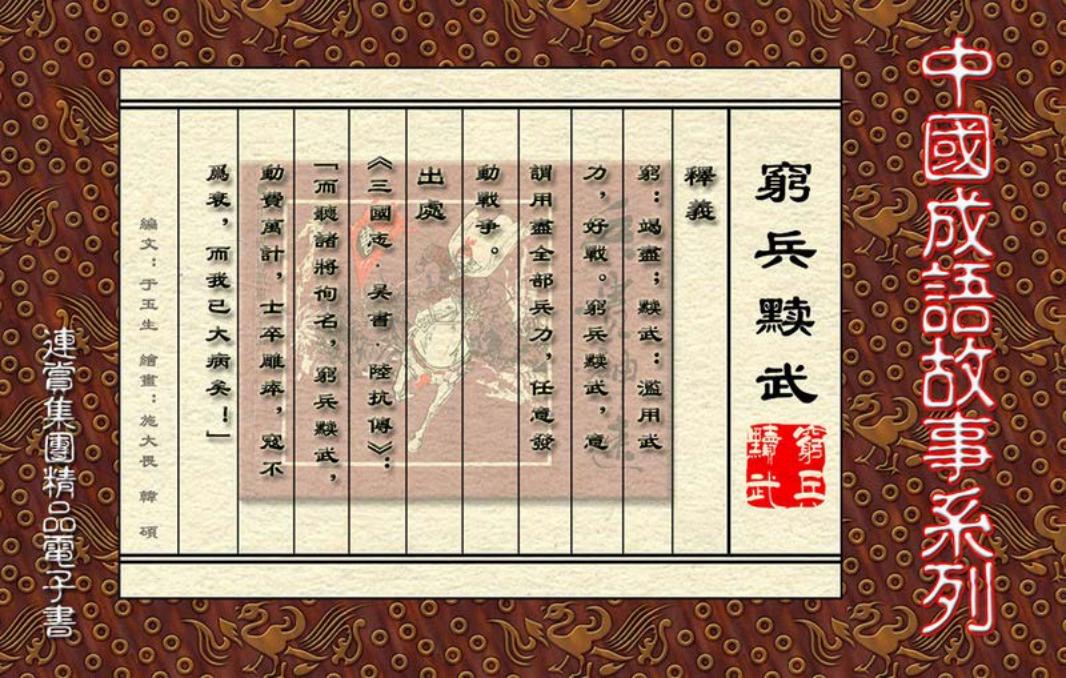 中國成語故事系列
窮兵黩武
窮兵
黷武
釋義
窮：竭盡；黩武：濫用武
力，好戰。窮兵黩武，意
謂用盡全部兵力，任意發
動戰爭。
出處
《三國志·吴書·陸抗傳》：
「而聽諸將徇名，窮兵黩武，
動費萬計，士卒雕瘁，寇不
爲衰，而我已大病矣！」
編文：于玉生 繪畫：施大畏 韓碩
連賞集團精品電子書